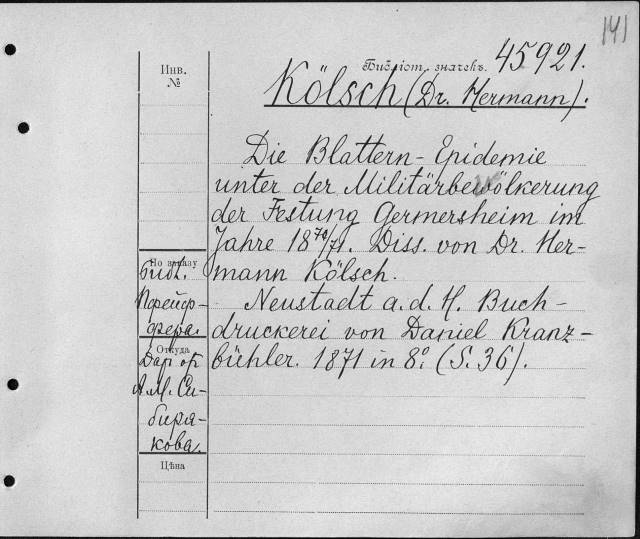 141
Библіот. значекъ. 45921.
Инв.
№
Kölsch (Dr. Hermann).
Die Blattern-Epidemie
unter der Militärbevölkerung
der Festung Germersheim im
Jahre 1870/71. Diss. von Dr. Her-
mann Kölsch.
Neustadt a. d. H. Buch-
druckerei von Daniel Kranz-
bühler. 1871 in 8º. (S. 36).
По заказу
библ.
Пфейф-
фера.
Откуда
Дар от
А.М. Си-
биря-
кова.
Цѣна